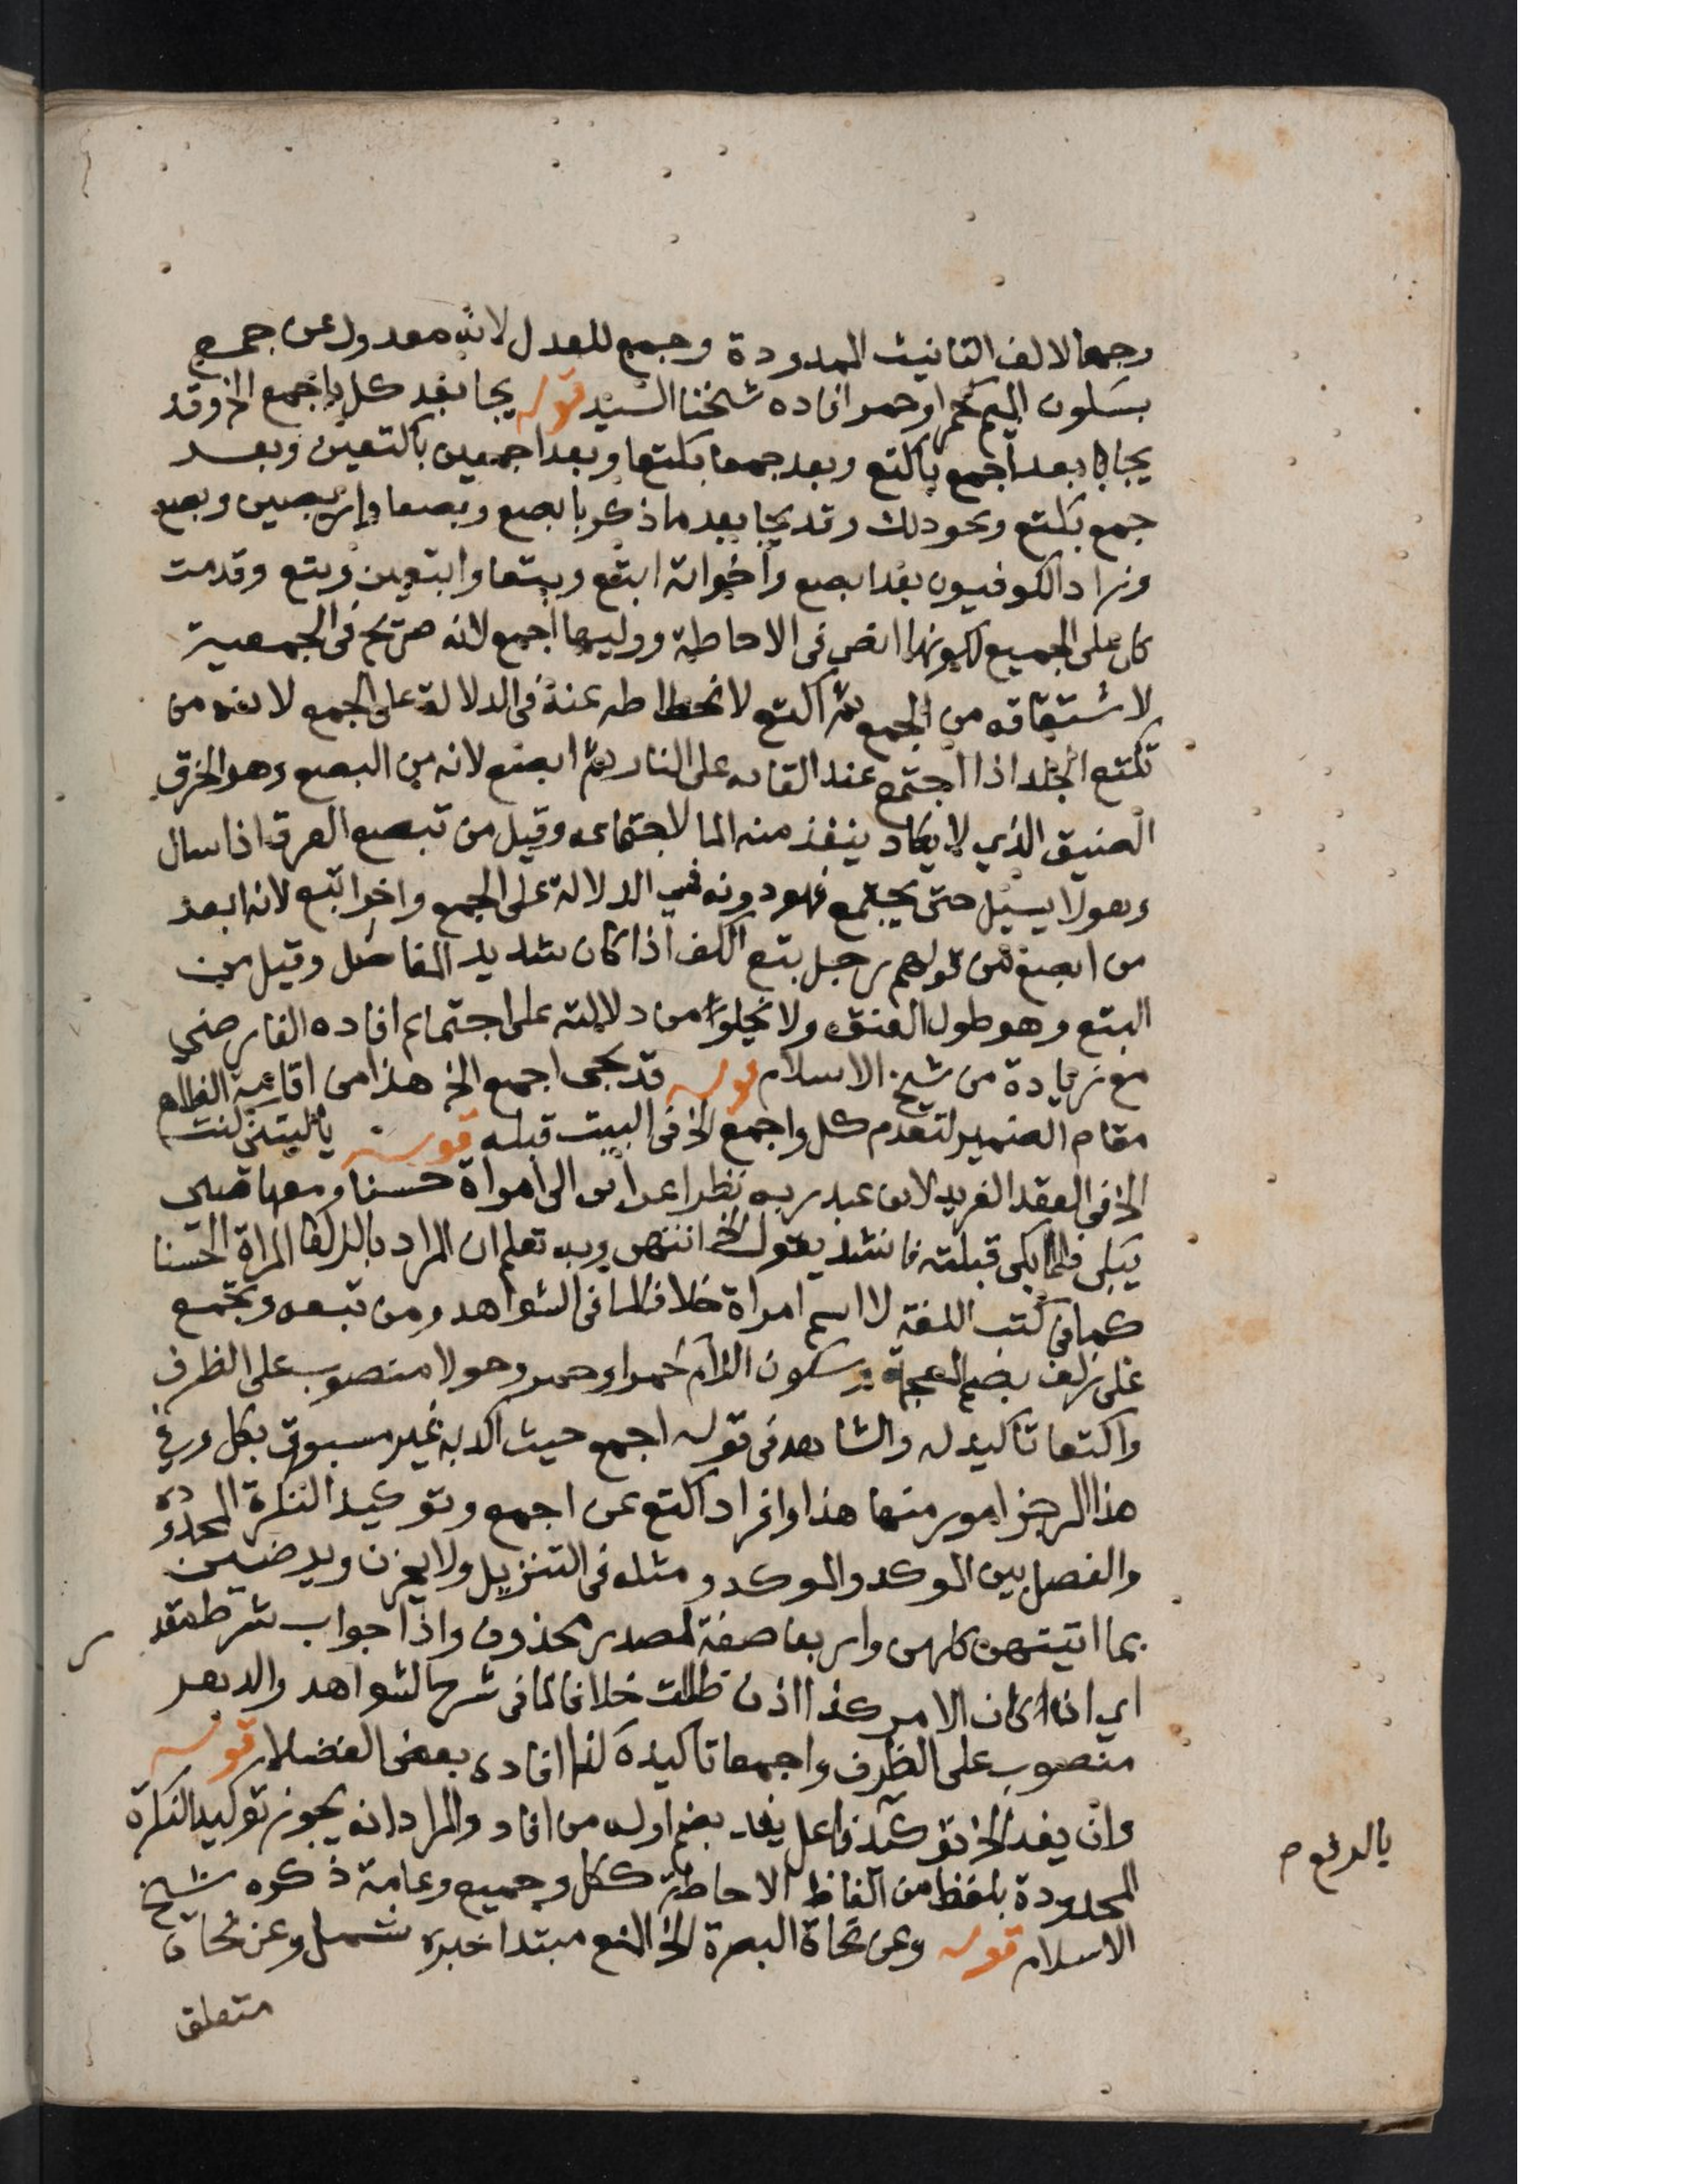 وجمعا لالف التانيث الممدودة وجمع للعدل لانه معدول عن جمع
بسكون الميم كحمرا وحمر افاده شخنا السيد قوله يجا بعد كل باجمع الخ وقد
يجا بعد اجمع باكتع وبعد جمعا بكتعا وبعد اجمعين باكتعين وبعد
جمع بكتع ونحو ذلك وقد يجا بعد ما ذكر بابصع وبصعا وابصعين وبصع
وزاد الكوفيون بعد ابصع واخواته ابتع وبتعا وابتعين وبتع وقدمت
كل على الجميع لكونها انص في الاحاطة ووليها اجمع لانه صريح في الجمعية
لاشتقاقه من الجمع ثم اكتع لانحطاطه عنه في الدلالة على الجمع لانه من
تكتع الجلد اذا اجتمع عند القائه على النار ثم ابصع لانه من البصع وهو الخرق
الضيق الذي لا يكاد ينفذ منه الما لاجتماعه وقيل من تبصع العرق اذا سال
وهو لا يسيل حتى يجتمع فهو دونه في الدلالة على الجمع واخر ابتع لانه ابعد
من ابصع من قولهم رجل بتع الكف اذا كان شديد المفاصل وقيل من
البتع وهو طول العنق ولا يخلوا من دلالته على اجتماع افاده الفارضي
مع زيادة من شيخ الاسلام قوله قد يجى اجمع الخ هذا من اقامة الظاهر
مقام الضمير لتقدم كل واجمع الخ في البيت قبله قوله ياليتني كنت
الخ في العقد الفريد لابن عبد ربه نظر اعرابى الى امراة حسنا ومعها صبى
يبكى فلما بكى قبلته فانشد يقول الخ انتهى وبه تعلم ان المراد بالذلفا المراة الحسنا
كما في كتب اللغة لا اسم امراة خلافا لما في الشواهد ومن تبعه وتجمع
على زلف بضم المعجمة وسكون اللام كحمرا وحمر وحولا منصوب على الظرف
واكتعا تاكيد له والشاهد في قوله اجمع حيث اكد به غير مسبوق بكل وفي
هذا الرجز امور منها هذا وافراد اكتع عن اجمع وتوكيد النكرة المحدودة
والفصل بين الموكد والموكد ومثله في التنزيل ولا يحزن ويرضين
بما اتيتهن كلهن واربعا صفة لمصدر محذوف واذا جواب شرط مقدر
اي اذا كان الامر كذا اذن ظللت خلافا لما في شرح الشواهد والدهر
منصوب على الظرف واجمعا تاكيده كذا افاده بعض الفضلا قوله
وان يفد الخ توكيد فاعل يفد بضم اوله من افاد والمراد انه يجوز توكيد النكرة
بالرفع صح
المحدودة بلفظ من الفاظ الاحاطة ككل وجميع وعامة ذكره شيخ
الاسلام قوله وعن نحاة البصرة الخ المنع مبتدا خبره شمل وعن نحاة
متعلق